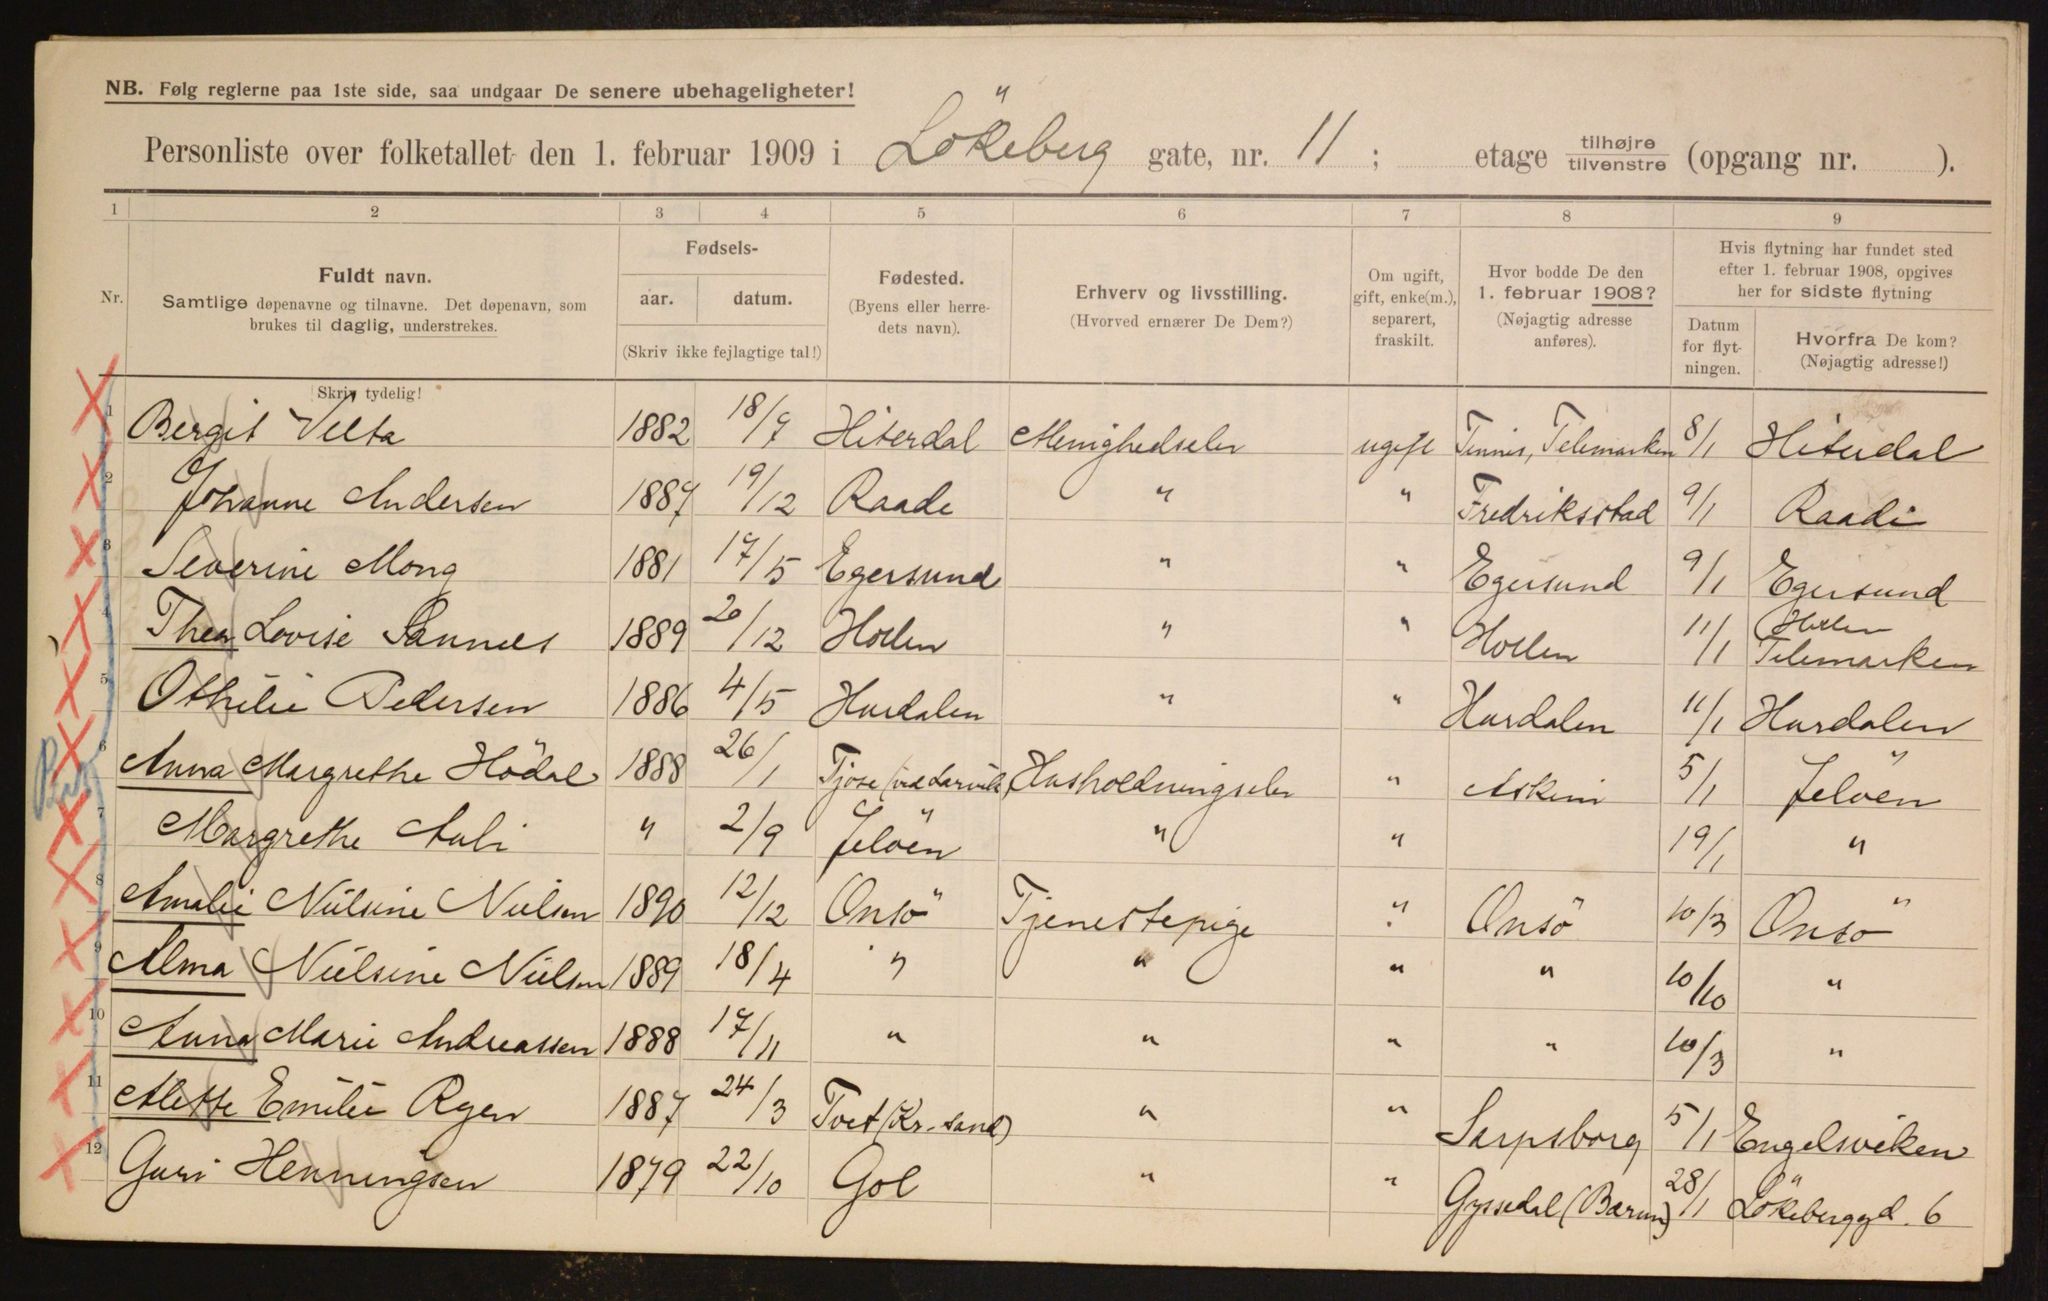 NB. Følg reglerne paa 1ste side, saa undgaar De senere ubehageligheter!
Personliste over folketallet den 1. februar 1909 i Lökeberg gate, nr. 11 ; etage tilhøjre tilvenstre (opgang nr. ).
1 2 3 4 5 6 7 8 9
Nr.
Fuldt navn.
Samtlige døpenavne og tilnavne. Det døpenavn, som
brukes til daglig, understrekes.
Skriv tydelig!
Fødsels-
aar. datum.
(Skriv ikke fejlagtige tal!)
Fødested.
(Byens eller herre-
dets navn).
Erhverv og livsstilling.
(Hvorved ernærer De Dem?)
Om ugift,
gift, enke(m.),
separert,
fraskilt.
Hvor bodde De den
1. februar 1908?
(Nøjagtig adresse
anføres).
Hvis flytning har fundet sted
efter 1. februar 1908, opgives
her for sidste flytning
Datum
for flyt-
ningen.
Hvorfra De kom?
(Nøjagtig adresse!)
1 Bergit Velta 1882 18/9 Hiterdal Menighedselev ugift Tinnes, Telemarken 8/1 Hiterdal
2 Johanne Andersen 1887 19/12 Raade " " Fredriksstad 9/1 Raade
3 Severine Mong 1881 17/5 Egersund " " Egersund 9/1 Egersund
4 Thea Lovise Sannes 1889 20/12 Hollen " " Hollen 11/1 Hollen Telemarken
5 Othilie Pedersen 1886 4/5 Hurdalen " " Hurdalen 11/1 Hurdalen
6 Anna Margrethe Hödal 1888 26/1 Tjose (ved Larvik) Husholdningselev " Askim 5/1 Jelöen
7 Margrethe Auli " 2/9 Jelöen " " 19/1 "
8 Amalie Nielsine Nielsen 1890 12/12 Onsö Tjenestepige " Onsö 10/3 Onsö
9 Alma Nielsine Nielsen 1889 18/4 " " " " 10/10 "
10 Anna Marie Andreassen 1888 17/11 " " " " 10/3 "
11 Alette Emilie Ryen 1887 24/3 Tvet (Kr.sand) " " Sarpsborg 5/1 Engelsviken
12 Guri Henningsen 1879 22/10 Gol " " Gyssedal (Bærum) 28/1 Lökeberggd. 6